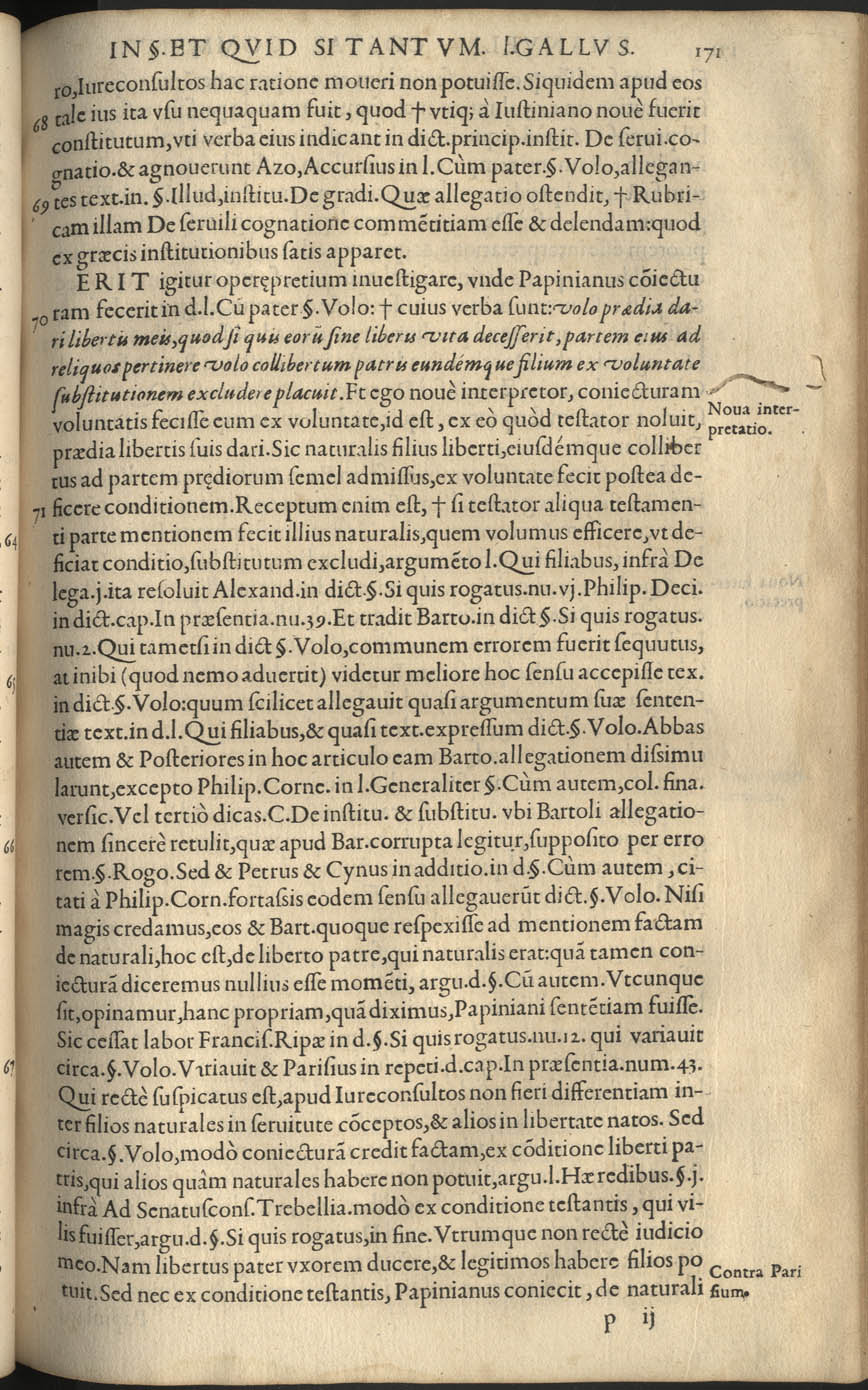 IN §.ET QVID SI TANTVM. l.GALLVS. 171
ro,Iureconſultos hac ratione moueri non potuiſſe.Siquidem apud eos
68 tale ius ita vſu nequaquam fuit, quod † vtiq; à Iuſtiniano nouè fuerit
conſtitutum,vti verba eius indicant in dict.princip.inſtit. De ſerui.co-
gnatio.& agnouerunt Azo,Accurſius in l.Cùm pater.§.Volo,allegan-
69 tes text.in. §.Illud,inſtitu.De gradi.Quæ allegatio oſtendit, † Rubri-
cam illam De ſeruili cognatione commẽtitiam eſſe & delendam:quod
ex græcis inſtitutionibus ſatis apparet.
ERIT igitur operępretium inueſtigare, vnde Papinianus cõiectu
70 ram fecerit in d.l.Cũ pater §.Volo: † cuius verba ſunt:volo prædia da-
ri libertis meis,quod ſi quis eorũ ſine liberis vita deceſſerit,partem eius ad
reliquos pertinere volo collibertum patris eundémque filium ex voluntate
ſubſtitutionem excludere placuit.Et ego nouè interpretor, coniecturam
voluntatis feciſſe eum ex voluntate,id eſt, ex eò quòd teſtator noluit,
Noua inter-
pretatio.
prædia libertis ſuis dari.Sic naturalis filius liberti,eiuſdémque colliber
tus ad partem prędiorum ſemel admiſſus,ex voluntate fecit poſtea de-
71 ficere conditionem.Receptum enim eſt, † ſi teſtator aliqua teſtamen-
ti parte mentionem fecit illius naturalis,quem volumus efficere,vt de-
ficiat conditio,ſubſtitutum excludi,argumẽto l.Qui filiabus, infrà De
lega.j.ita reſoluit Alexand.in dict.§.Si quis rogatus.nu.vj.Philip. Deci.
in dict.cap.In præſentia.nu.39.Et tradit Barto.in dict §.Si quis rogatus.
nu.2.Qui tametſi in dict §.Volo,communem errorem fuerit ſequutus,
at inibi (quod nemo aduertit) videtur meliore hoc ſenſu accepiſſe tex.
in dict.§.Volo:quum ſcilicet allegauit quaſi argumentum ſuæ ſenten-
tiæ text.in d.l.Qui filiabus,& quaſi text.expreſſum dict.§.Volo.Abbas
autem & Poſteriores in hoc articulo eam Barto.allegationem diſsimu
larunt,excepto Philip.Corne. in l.Generaliter §.Cùm autem,col. fina.
verſic.Vel tertiò dicas.C.De inſtitu. & ſubſtitu. vbi Bartoli allegatio-
nem ſincerè retulit,quæ apud Bar.corrupta legitur,ſuppoſito per erro
rem.§.Rogo.Sed & Petrus & Cynus in additio.in d.§.Cùm autem, ci-
tati à Philip.Corn.fortaſsis eodem ſenſu allegauerũt dict.§.Volo. Niſi
magis credamus,eos & Bart.quoque reſpexiſſe ad mentionem factam
de naturali,hoc eſt,de liberto patre,qui naturalis erat:quã tamen con-
iecturã diceremus nullius eſſe momẽti, argu.d.§.Cũ autem.Vtcunque
ſit,opinamur,hanc propriam,quã diximus,Papiniani ſentẽtiam fuiſſe.
Sic ceſſat labor Franciſ.Ripæ in d.§.Si quis rogatus.nu.12. qui variauit
circa.§.Volo.Variauit & Pariſius in repeti.d.cap.In præſentia.num.43.
Qui rectè ſuſpicatus eſt,apud Iureconſultos non fieri differentiam in-
ter filios naturales in ſeruitute cõceptos,& alios in libertate natos. Sed
circa.§.Volo,modò coniecturã credit factam,ex cõditione liberti pa-
tris,qui alios quâm naturales habere non potuit,argu.l.Hæredibus.§.j.
infrà Ad Senatuſconſ.Trebellia.modò ex conditione teſtantis, qui vi-
lis fuiſſet,argu.d.§.Si quis rogatus,in fine.Vtrumque non rectè iudicio
meo.Nam libertus pater vxorem ducere,& legitimos habere filios po
tuit.Sed nec ex conditione teſtantis, Papinianus coniecit, de naturali
Contra Pari
ſium.
p ij
64
65
66
67